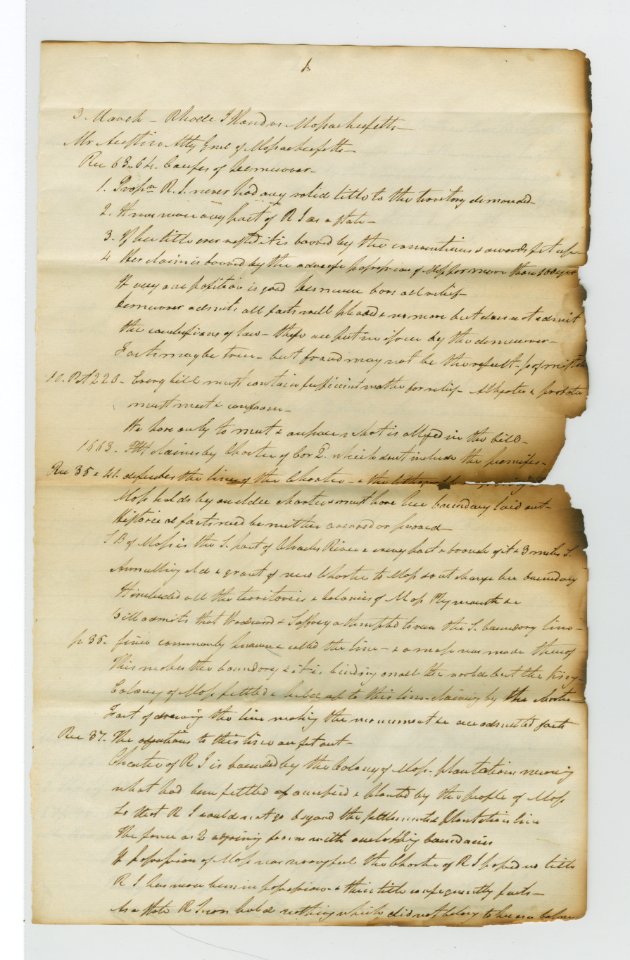 1
3 March - Rhode Island vs Massachusetts
Mr Austin Atty Genl of Massachusetts
Rec 63.64. Causes of Demurrer
1. Propn R. I. never had any valid title to the territory demanded
2. It was never any part of R I as a State
3. If her title ever existed it is bound by the conventions & awards set up
4 Her claim is bound by the adverse possession of Mass for more than 100 years
If any one position is good demurrer bars all relief
Demurrer admits all facts well plead & no more but does not admit
the conclusions of law - these are put in issue by the demurrer
Facts may be true - but fraud may not be the result
10. Pet 220. Every bill must contain sufficient matter for relief
must meet & conform
We have only to meet & answer what is alleged in the bill
1663. Plff claims by Charter of Cor 2. which dont include the premises
Rec 35 & defines the lines of the Charter - & the
Mass holds by an elder charter & must have her boundary laid out
Historical facts need be neither averred or proved
S B of Mass is the S. part of Charles River & every part & branch of it & 3 miles S.
Annulling old & grant of new Charter to Mass do not change her boundary
It included all the territories & colonies of Mass Plymouth &c
Bill admits that Woodward & Saffrey attempted to run the S. boundary line
p 35. since commonly known & called the line - & a map was made thereof
This makes the boundary & it is binding on all the world but the King
Colony of Mass settled & held up to this line claiming by the Charter
Fact of drawing the line making the monument &c are admitted facts
Rec 37. The objections to this line are set out
Charter of R I is bounded by the Colony of Mass. plantations meaning
what had been settled & planted by the people of Mass
So that R I could not go beyond the settlements Plantation line
The power as 2 adjoining farms with boundaries
If possession of Mass was wrongful the Charter of R I passed no title
R I has never been in possession & this title consequently fails
As a State R I can hold nothing which did not belong to her as a colony